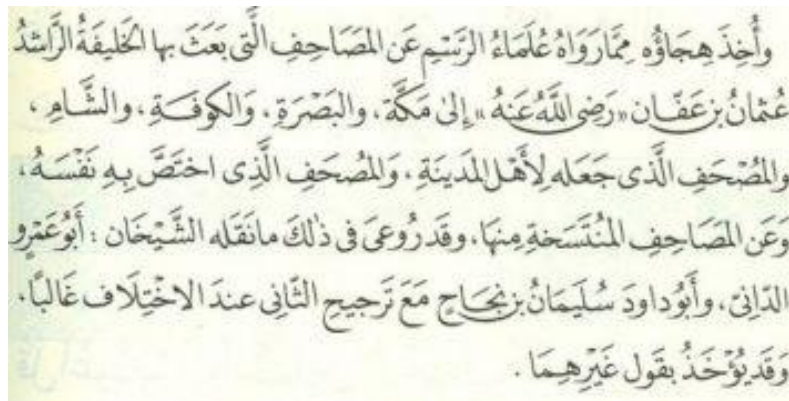 وأُخِذَ هِجَاؤُه مِمَّا رَوَاهُ عُلَمَاءُ الرَّسْمِ عَنِ المَصَاحِفِ الَّتِى بَعَثَ بِهَا الخَلِيفَةُ الرَّاشِدُ
عُثمَانُ بنِ عَفَّان «رَضِىَ اللَّهُ عَنهُ» إِلىٰ مَكَّةَ، والبَصْرَةِ، وَالكُوفَةِ، والشَّامِ،
والمُصْحَفِ الَّذى جَعَلَه لِأَهْلِ المَدِينَةِ، وَالمُصحَفِ الَّذِى اختَصَّ بِهِ نَفْسَهُ،
وَعَنِ المَصَاحِفِ المُنْتَسَخَةِ مِنهَا، وقَد رُوعىَ فى ذٰلكَ مانَقَلَه الشَّيْخَان : أَبُوعَمْرٍو
الدّانِىّ، وأَبُو داودَ سُلَيمَانُ بن نجَاحٍ مَعَ تَرجِيحِ الثَّانِى عندَ الاخْتِلَاف غَالبًا.
وَقَد يُؤْخَذُ بقَول غَيْرِهِمَا .